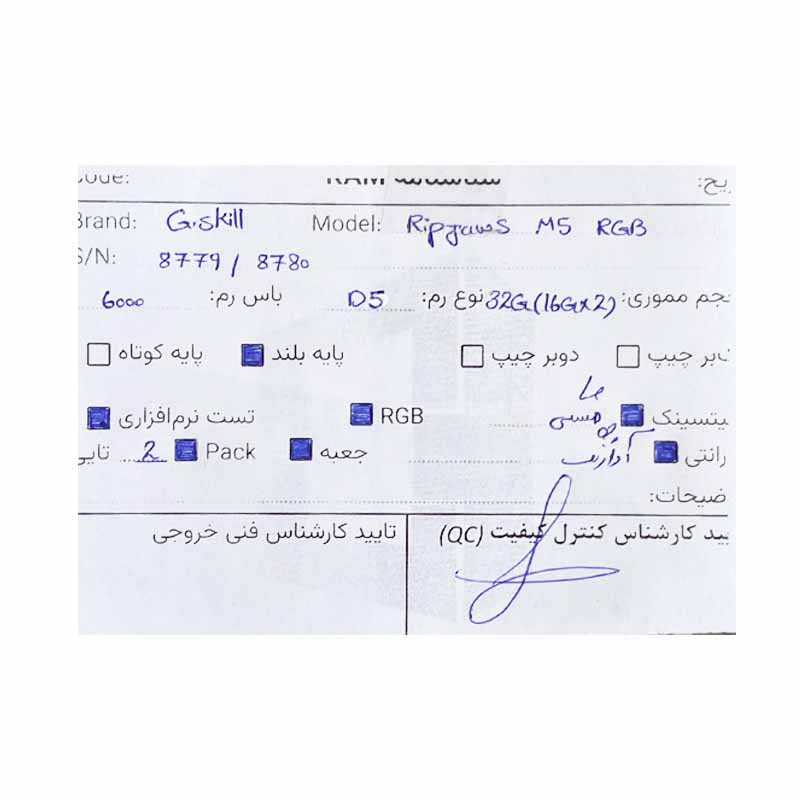 Code: شناسنامه RAM
Brand: G.skill Model: Ripjaws M5 RGB
S/N: 8779 / 8780
حجم مموری: 32G(16G×2) نوع رم: D5 باس رم: 6000
تک‌بر چیپ دوبر چیپ پایه بلند پایه کوتاه
هیتسینک مسی RGB تست نرم‌افزاری
گارانتی آواژنگ جعبه Pack 2 تایی
توضیحات:
تایید کارشناس کنترل کیفیت (QC) تایید کارشناس فنی خروجی